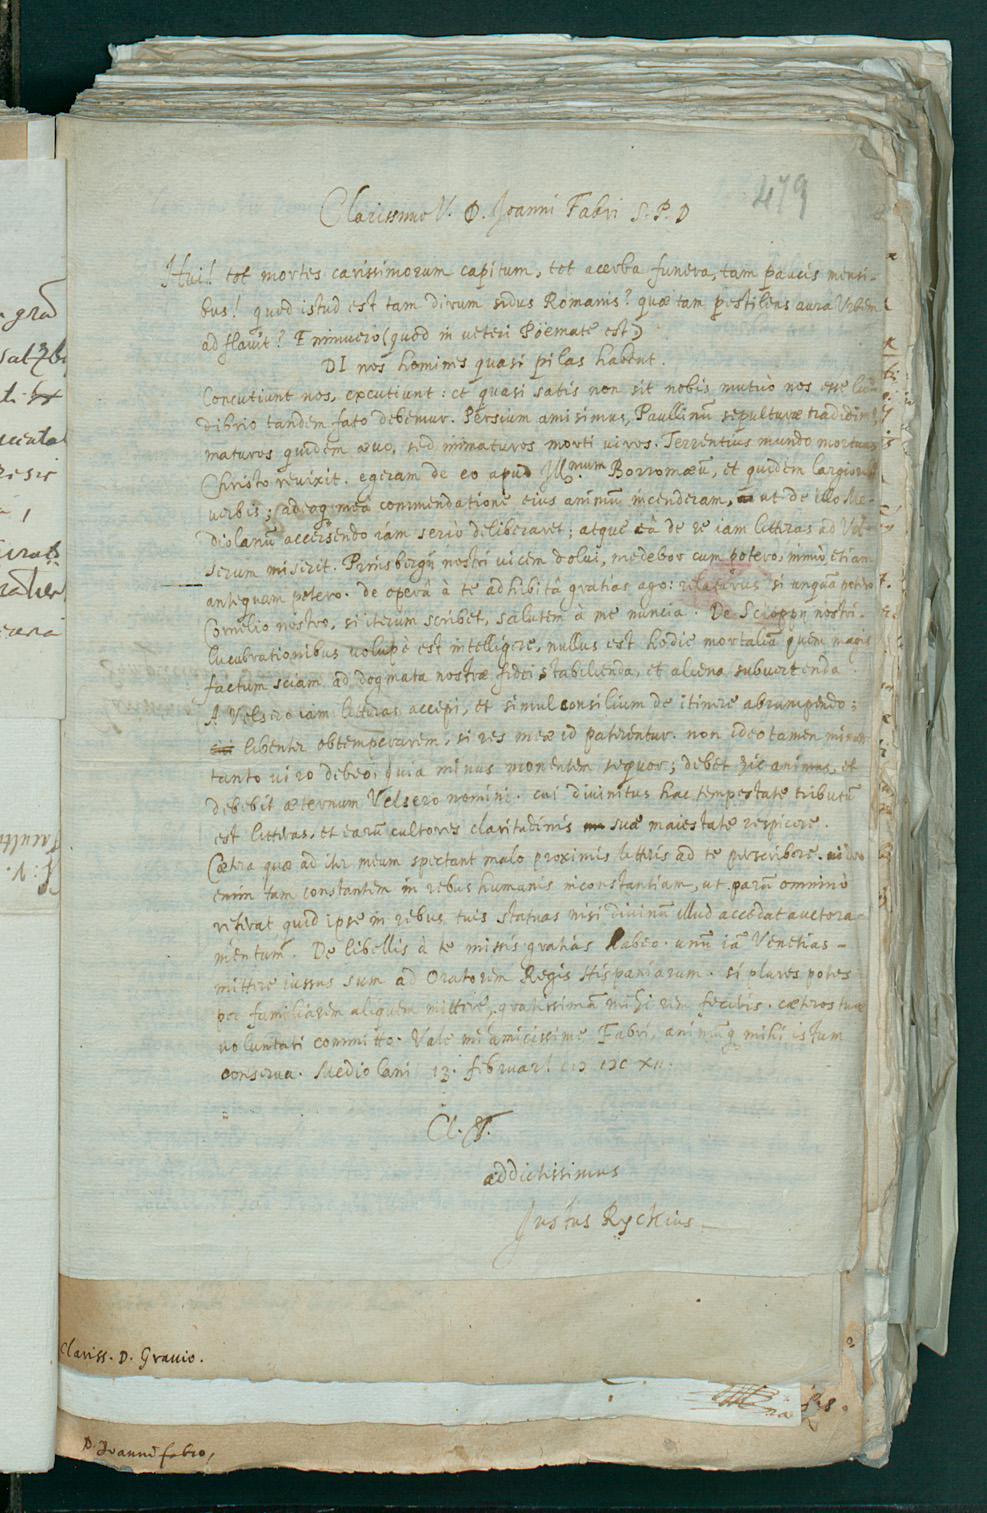 479
Clarissimo V. D. Joanni Fabri S. P. D
Hui! tot mortes carissimorum capitum, tot acerba funera, tam paucis mensi-
bus! quod istud est tam dirum sidus Romanis? quæ tam pestilens aura Urbem
adflavit? Enimvero (quod in veteri Poëmate est)
DI nos homines quasi pilas habent.
Concutiunt nos, excutiunt: et quasi satis non sit nobis mutuò nos esse lu
dibrio tandem fato debemur. Persium amisimus, Paullinū sepulturæ tradidim9,
maturos quidem ævo, sed immaturos morti viros. Terrentius mundo mortuus
Christo revixit. egeram de eo apud Illmum. Borromæū, et quidem largiorib
verbis; adeoq; meâ commendatione eius animū incenderam, ut de illo Me-
diolanū accersendo iam seriò deliberaret; atque eâ de re iam litteras ad Vel-
serum miserit. Prinsbergij nostri vicem dolui, medebor cum potero, immò etiam
antequam potero. de operâ à te adhibitâ gratias ago: relaturus si unquā potero
Cornelio nostro, si iterum scribet, salutem à me nuncia. De Scioppij nostri
lucubrationibus volupè est intelligere, nullus est hodie mortaliū quem magis
factum sciam ad dogmata nostræ fidei stabilienda, et aliena subvertenda.
A Velsero iam litteras accepi, et simul consilium de itinere abrumpendo;
libenter obtemperarem, si res meæ id paterentur. non ideo tamen minus
tanto viro debeo, quia minus monentem sequor; debet hic animus, et
debebit æternum Velsero nomini. cui divinitus hac tempestate tributū
est litteras, et earū cultores claritudinis suæ maiestate respicere.
Cætera quæ ad iter meum spectant malo proximis litteris ad te perscribere. video
enim tam constantem in rebus humanis inconstantiam, ut parū omninò
referat quid ipse in rebus tuis statuas nisi divinū illud accedat auctora-
mentum. De libellis à te missis gratias habeo. unū iā Venetias
mittere iussus sum ad Oratorem Regis Hispaniarum. si plures potes
per familiarem aliquem mittere, gratissimā mihi rem feceris. cæteros tuæ
voluntati committo. Vale mi amicissime Fabri, animūq; mihi istum
conserva. Mediolani 13. februar. cIɔ Iɔc XII.
Cl. T.
addictissimus
Justus Ryckius
Clariss. D. Gravio.
D. Joanni fabro,